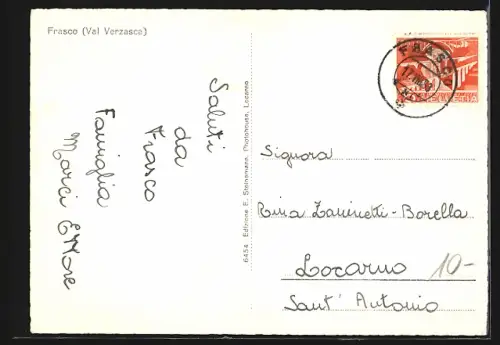 Frasco (Val Verzasca)
Saluti
da
Frasco
Famiglia
Marci Ettore
6454 Edizione E. Steinemann, Photohouse, Locarno
FRASCO
HELVETIA
Signora
Rina Zaninetti-Borella
Locarno 10-
Sant' Antonio